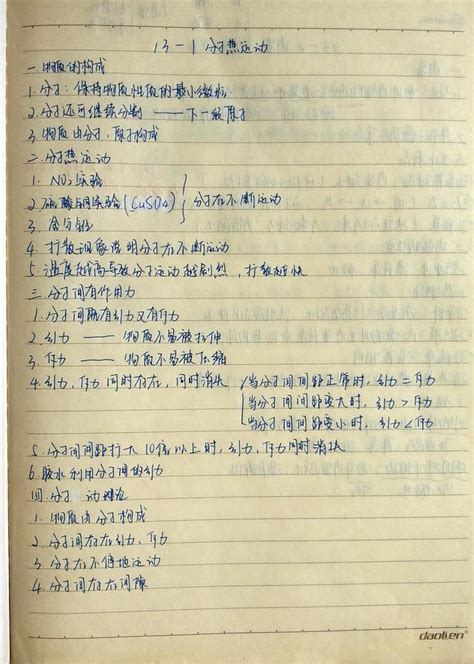 13-1 分子热运动
一.物质的构成
1.分子:保持物质性质的最小微粒
2.分子还可继续分割 —— 下一级原子
3.物质由分子.原子构成
二.分子热运动
1. NO₂ 实验
2.硫酸铜实验(CuSO₄) 分子在不断运动
3.
4.扩散现象说明分子在不断运动
5.温度越高导致分子运动越剧烈,扩散越快
三.分子间有作用力
1.分子间既有引力又有斥力
2.引力 —— 物质不易被拉伸
3.斥力 —— 物质不易被压缩
4.引力、斥力同时存在,同时消失
当分子间间距正常时,引力=斥力
当分子间间距变大时,引力>斥力
当分子间间距变小时,引力<斥力
5.分子间间距扩大10倍以上时,引力、斥力同时消失
6.胶水利用分子间的引力
四.分子动理论
1.物质由分子构成
2.分子间存在引力、斥力
3.分子在不停地运动
4.分子间存在间隙
daolien